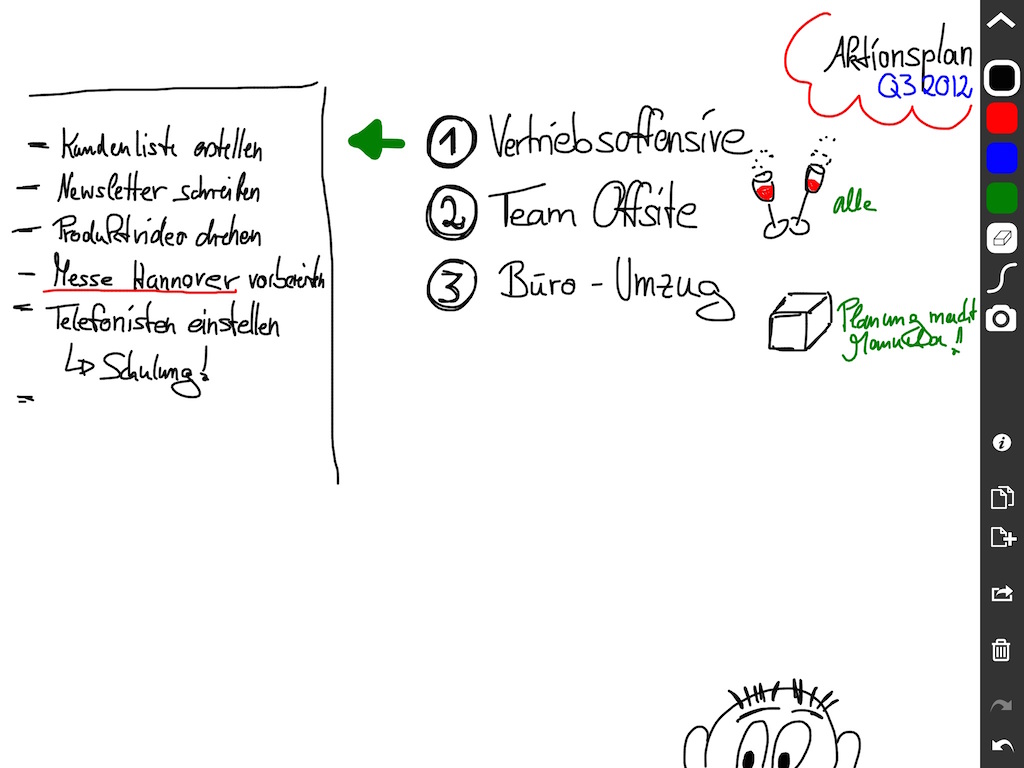 Aktionsplan
Q3 2012
- Kundenliste erstellen
- Newsletter schreiben
- Produktvideo drehen
- Messe Hannover vorbereiten
- Telefonisten einstellen
↳ Schulung!
1 Vertriebsoffensive
2 Team Offsite
alle
3 Büro - Umzug
Planung macht